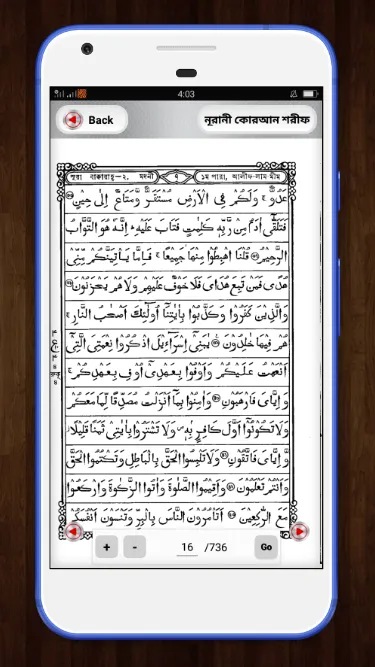 4:03
Back
নূরানী কোরআন শরীফ
সূরা বাকারাহ্-২, মদনী ৭ ১ম পারা, আলীফ-লাম-মীম
عَدُوٌّ ۚ وَلَكُمْ فِي الْاَرْضِ مُسْتَقَرٌّ وَّمَتَاعٌ اِلٰى حِيْنٍ
فَتَلَقّٰى اٰدَمُ مِنْ رَّبِّهٖ كَلِمٰتٍ فَتَابَ عَلَيْهِ ؕ اِنَّهٗ هُوَ التَّوَّابُ
الرَّحِيْمُ قُلْنَا اهْبِطُوْا مِنْهَا جَمِيْعًا ۚ فَاِمَّا يَاْتِيَنَّكُمْ مِّنِّيْ
هُدًى فَمَنْ تَبِعَ هُدَايَ فَلَا خَوْفٌ عَلَيْهِمْ وَلَا هُمْ يَحْزَنُوْنَ
وَالَّذِيْنَ كَفَرُوْا وَكَذَّبُوْا بِاٰيٰتِنَآ اُولٰٓئِكَ اَصْحٰبُ النَّارِ ۚ
هُمْ فِيْهَا خٰلِدُوْنَ يٰبَنِيْٓ اِسْرَآءِيْلَ اذْكُرُوْا نِعْمَتِيَ الَّتِيْٓ
اَنْعَمْتُ عَلَيْكُمْ وَاَوْفُوْا بِعَهْدِيْٓ اُوْفِ بِعَهْدِكُمْ ۚ
وَاِيَّايَ فَارْهَبُوْنِ وَاٰمِنُوْا بِمَآ اَنْزَلْتُ مُصَدِّقًا لِّمَا مَعَكُمْ
وَلَا تَكُوْنُوْٓا اَوَّلَ كَافِرٍۭ بِهٖ ۪ وَلَا تَشْتَرُوْا بِاٰيٰتِيْ ثَمَنًا قَلِيْلًا ۫
وَّاِيَّايَ فَاتَّقُوْنِ وَلَا تَلْبِسُوا الْحَقَّ بِالْبَاطِلِ وَتَكْتُمُوا الْحَقَّ
وَاَنْتُمْ تَعْلَمُوْنَ وَاَقِيْمُوا الصَّلٰوةَ وَاٰتُوا الزَّكٰوةَ وَارْكَعُوْا
مَعَ الرّٰكِعِيْنَ اَتَاْمُرُوْنَ النَّاسَ بِالْبِرِّ وَتَنْسَوْنَ اَنْفُسَكُمْ
+ - 16 /736 Go